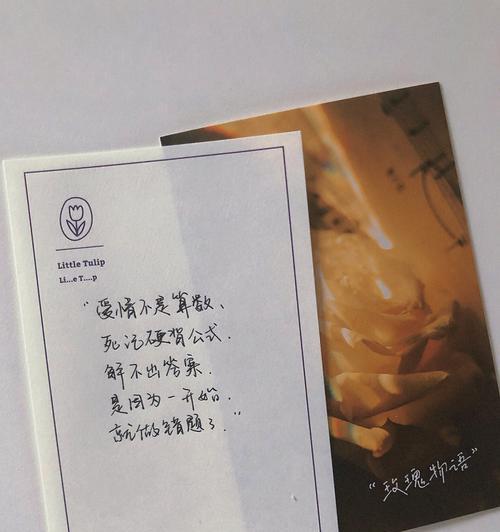 Little Tulip
Li...e T....p
“爱情不是算数、
死记硬背公式.
解不出答案.
是因为一开始.
就做错题了.”
“玫瑰物语”